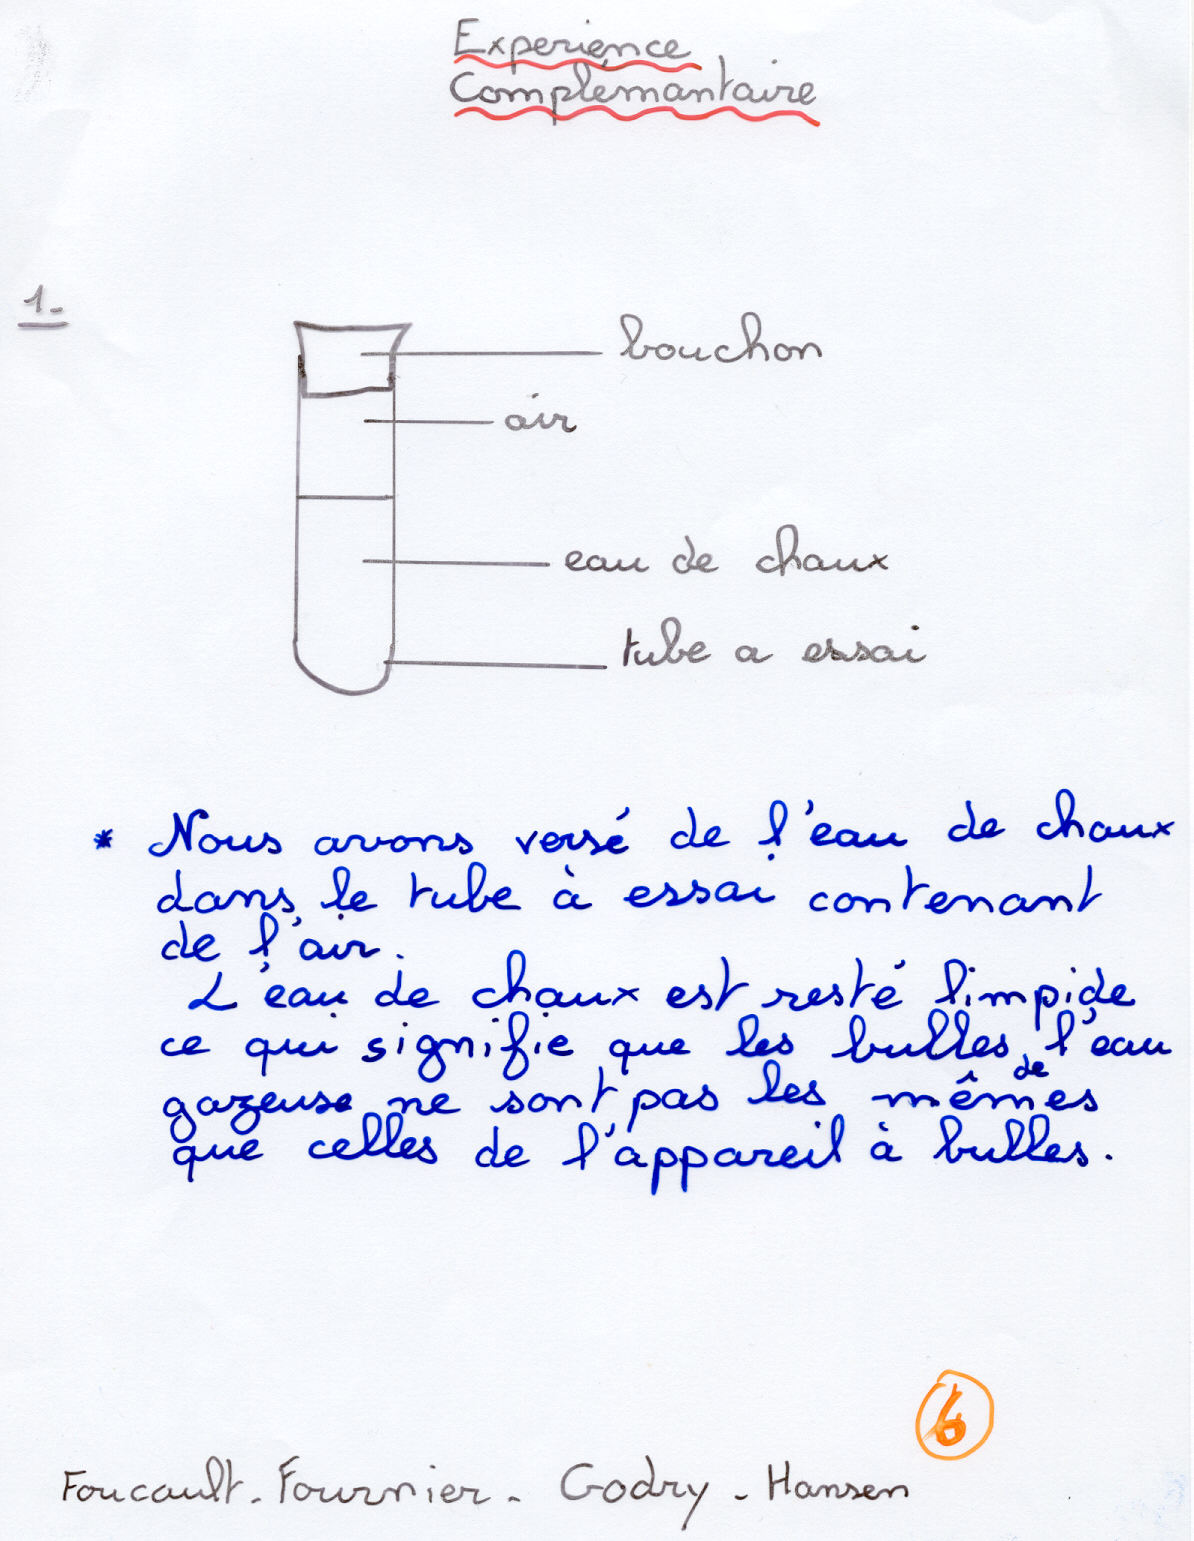 Experience
Complémantaire
1-
bouchon
air
eau de chaux
tube a essai
* Nous avons versé de l'eau de chaux
dans le tube à essai contenant
de l'air.
L'eau de chaux est resté limpide
ce qui signifie que les bulles de l'eau
gazeuse ne sont pas les mêmes
que celles de l'appareil à bulles.
6
Foucault - Fournier - Godry - Hansen